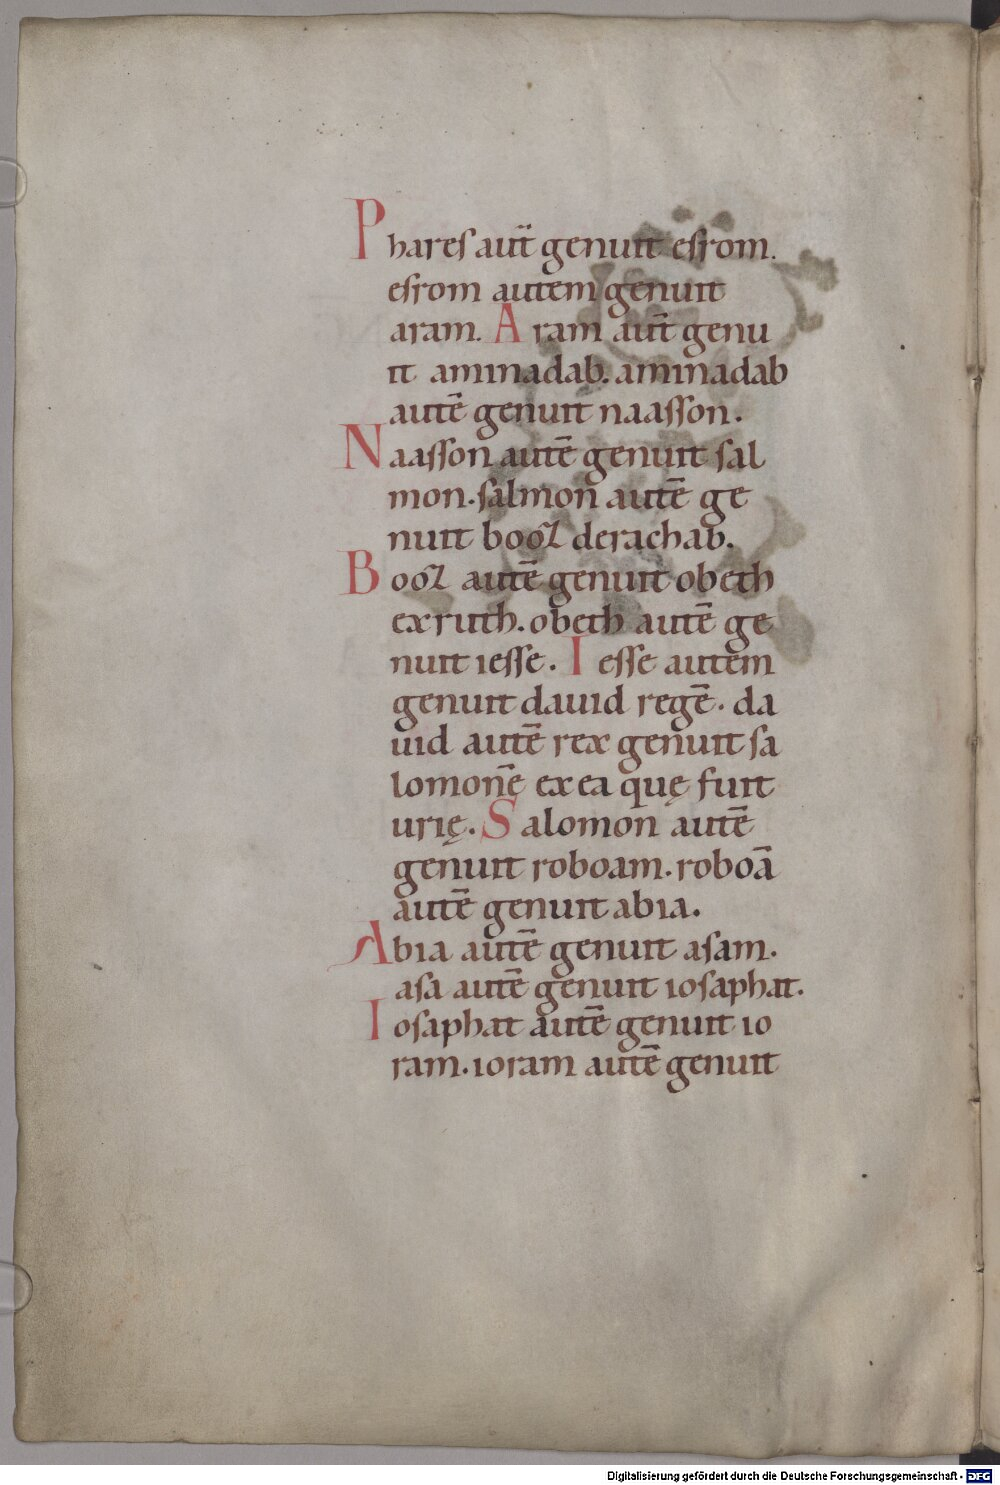 Phares aut̄ genuit esrom.
esrom autem genuit
aram. Aram aut̄ genu
it aminadab. aminadab
autē genuit naasson.
Naasson autē genuit sal
mon. salmon autē ge
nuit booz derachab.
Booz autē genuit obeth
exruth. obeth autē ge
nuit iesse. Iesse autem
genuit dauid regē. da
uid autē rex genuit sa
lomonē ex ea quę fuit
urię. Salomon autē
genuit roboam. roboā
autē genuit abia.
Abia autē genuit asam.
asa autē genuit iosaphat.
Iosaphat autē genuit io
ram. ioram autē genuit
Digitalisierung gefördert durch die Deutsche Forschungsgemeinschaft - DFG